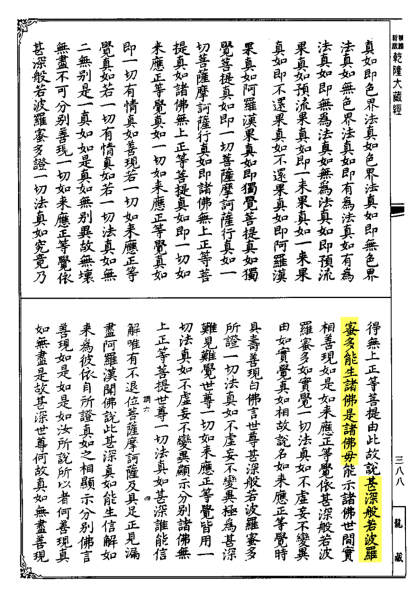 乾隆大藏經
真如即色界法真如色界法真如即無色界
法真如無色界法真如即有為法真如有為
法真如即無為法真如無為法真如即預流
果真如預流果真如即一來果真如一來果
真如即不還果真如不還果真如即阿羅漢
果真如阿羅漢果真如即獨覺菩提真如獨
覺菩提真如即一切菩薩摩訶薩行真如一
切菩薩摩訶薩行真如即諸佛無上正等菩
提真如諸佛無上正等菩提真如即一切如
來應正等覺真如一切如來應正等覺真如
即一切有情真如善現若一切如來應正等
覺真如若一切有情真如若一切法真如無
二無別是一真如如是真如無別異故無壞
無盡不可分別善現一切如來應正等覺依
甚深般若波羅蜜多證一切法真如究竟乃
三八八
龍藏
得無上正等菩提由此故說甚深般若波羅
蜜多能生諸佛是諸佛母能示諸佛世間實
相善現如是如來應正等覺依甚深般若波
羅蜜多如實覺一切法真如不虛妄不變異
由如實覺真如相故說名如來應正等覺時
具壽善現白佛言世尊甚深般若波羅蜜多
所證一切法真如不虛妄不變異極為甚深
難見難覺世尊一切如來應正等覺皆用一
切法真如不虛妄不變異顯示分別諸佛無
上正等菩提世尊一切法真如甚深誰能信
解唯有不退位菩薩摩訶薩及具足正見漏
盡阿羅漢聞佛說此甚深真如能生信解如
來為彼依自所證真如之相顯示分別佛言
善現如是如是如汝所說所以者何善現真
如無盡是故甚深世尊何故真如無盡善現